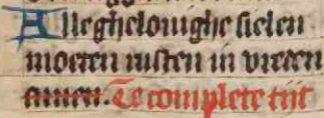 Alle ghelouighe sielen
moeten rusten in vreden
amen. Te complete tijt